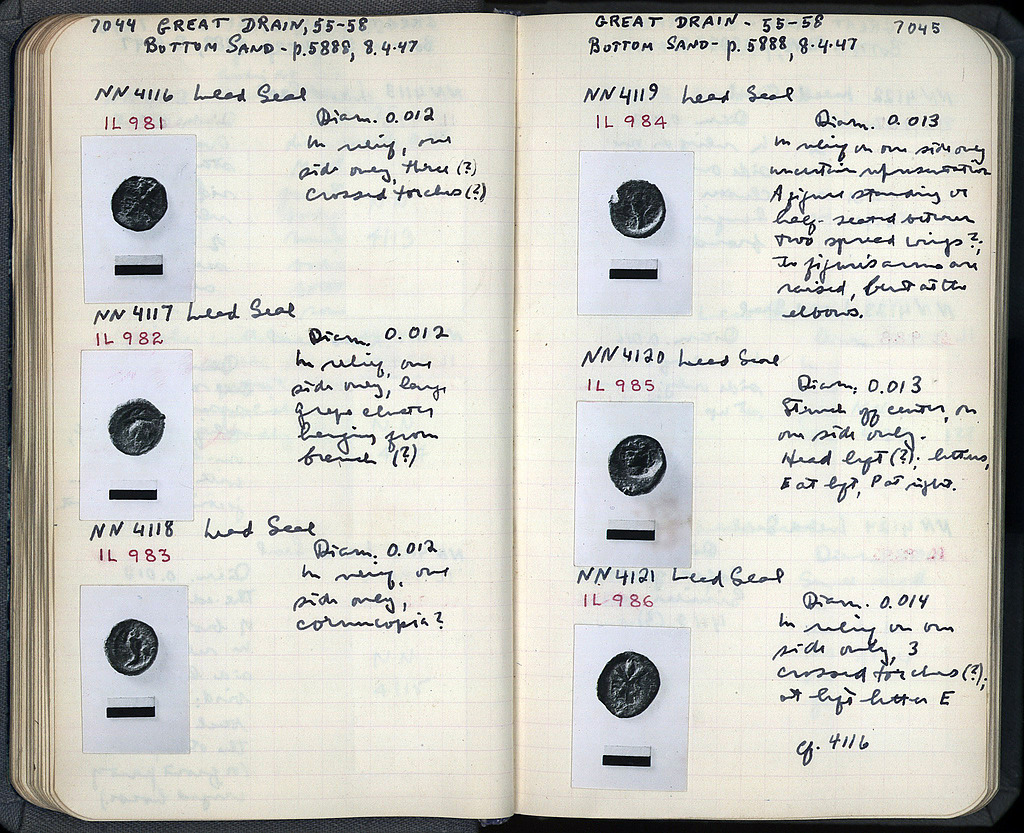 7044 GREAT DRAIN, 55-58
BOTTOM SAND - p. 5888, 8.4.47
NN 4116 Lead Seal
IL 981
Diam. 0.012
In relief, one
side only, three (?)
crossed torches (?)
NN 4117 Lead Seal
IL 982
Diam. 0.012
In relief, one
side only, large
grape cluster
hanging from
branch (?)
NN 4118 Lead Seal
IL 983
Diam. 0.012
In relief, one
side only,
cornucopia?
GREAT DRAIN - 55-58 7045
BOTTOM SAND - p. 5888, 8.4.47
NN 4119 Lead Seal
IL 984
Diam. 0.013
In relief on one side only
uncertain representation
A figure standing or
half-seated between
two spread wings?;
The figure's arms are
raised, bent at the
elbows.
NN 4120 Lead Seal
IL 985
Diam. 0.013
Struck off center, on
one side only.
Head left (?); letters,
E at left, P at right.
NN 4121 Lead Seal
IL 986
Diam. 0.014
In relief on one
side only, 3
crossed torches (?);
at left letter E
cf. 4116